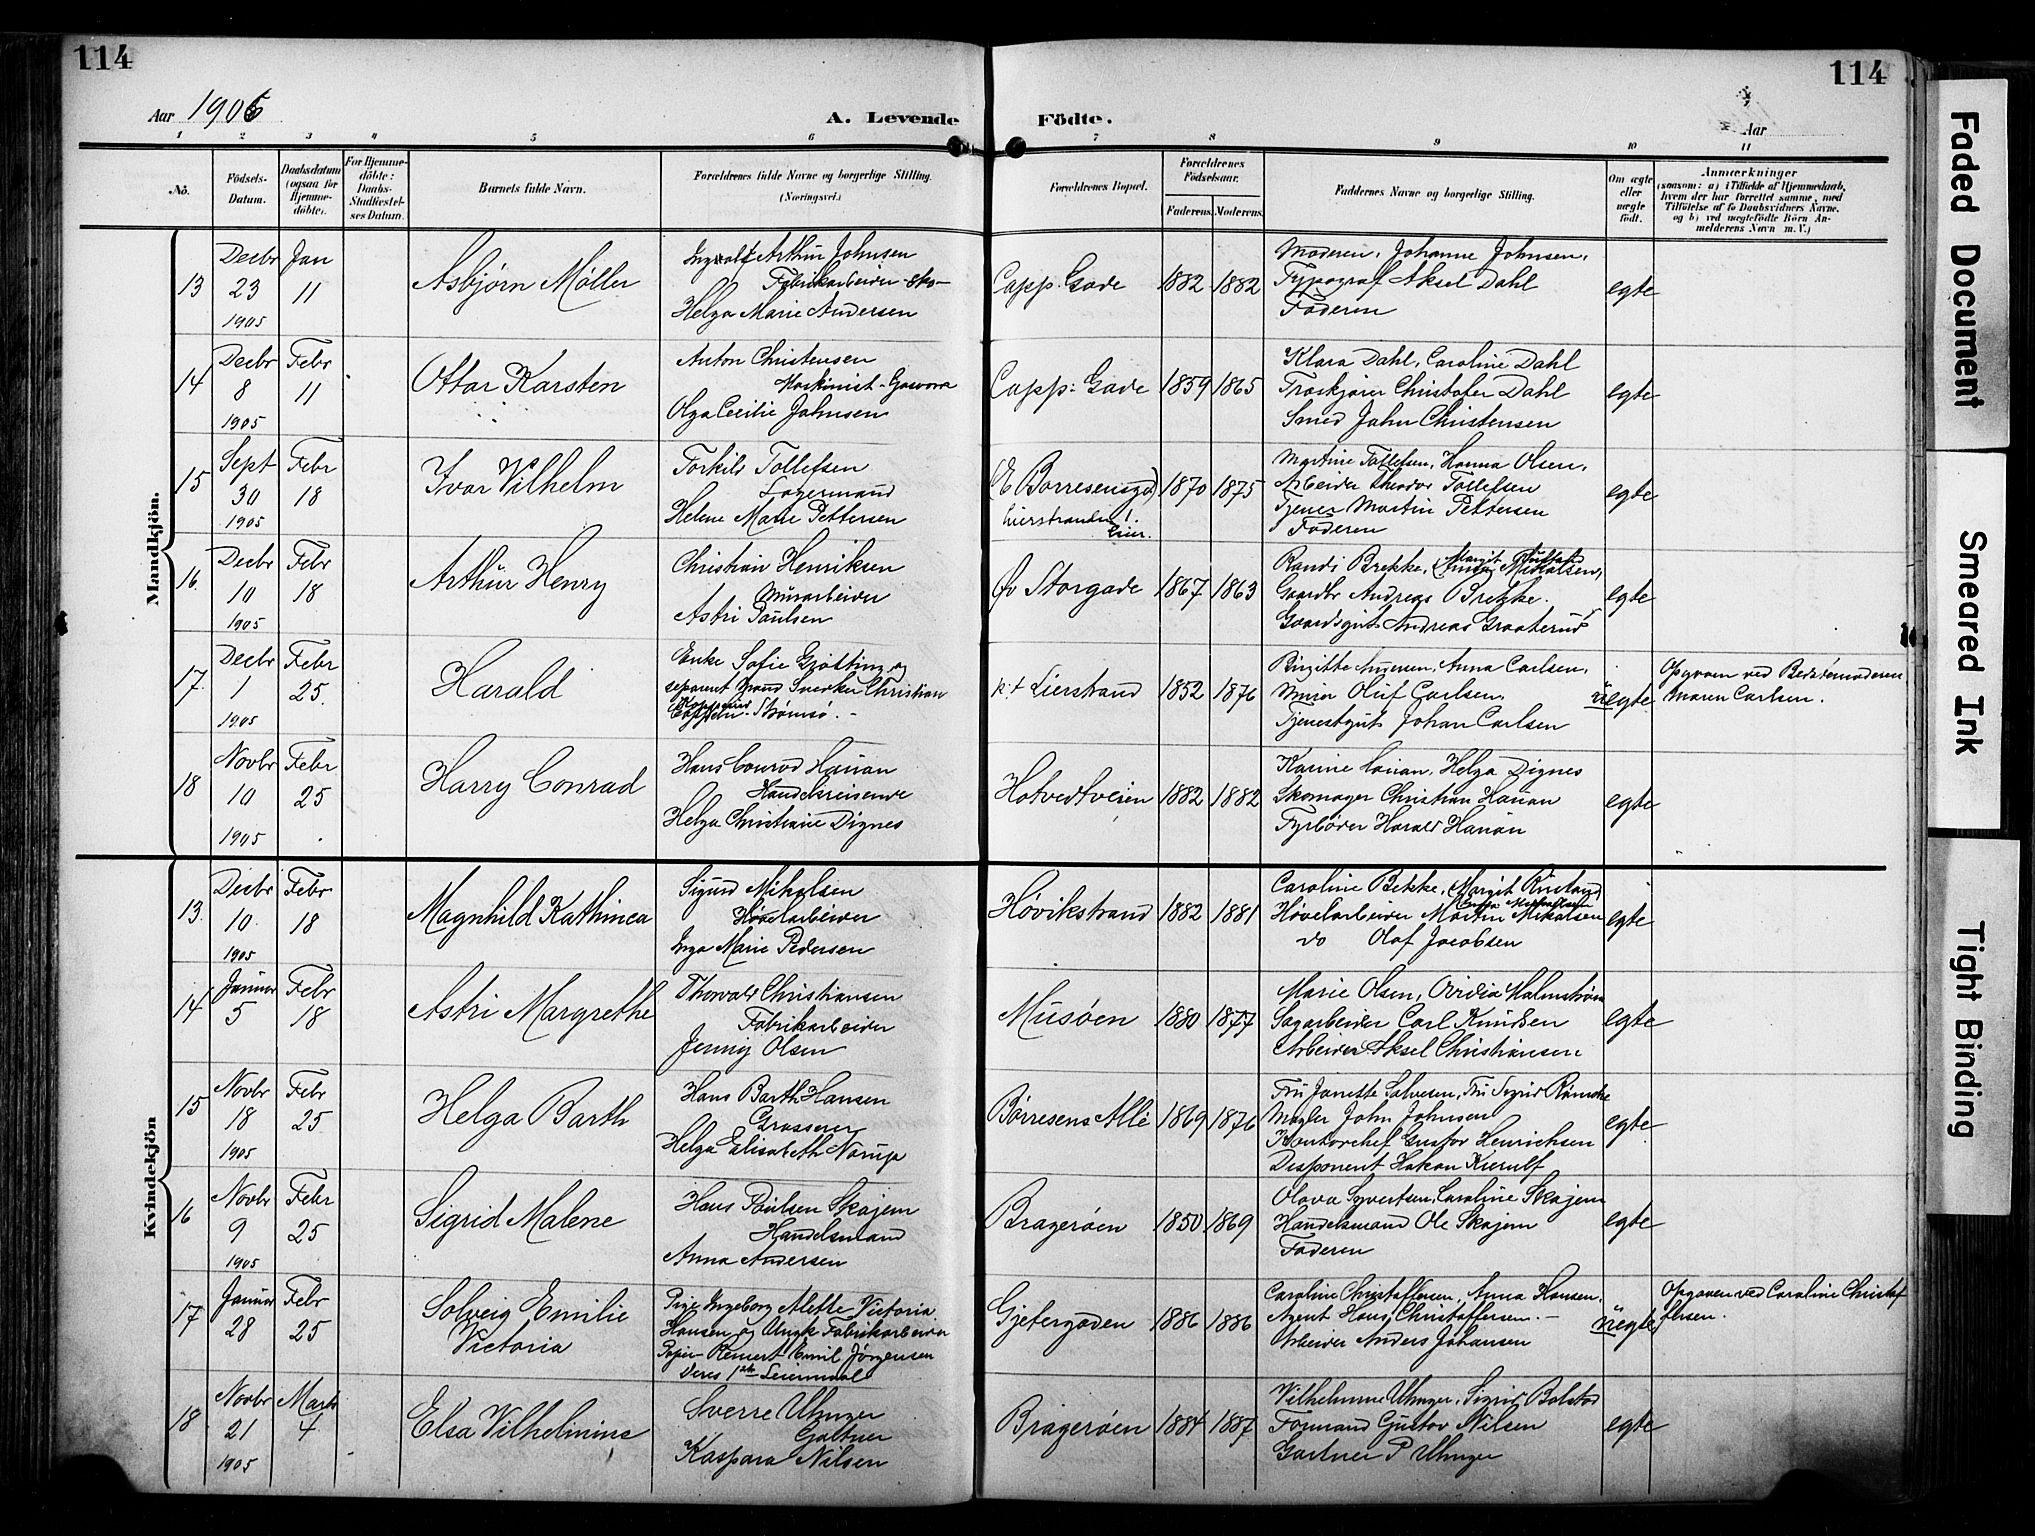 114
114
Aar 1906
A. Levende Födte.
Aar
1 2 3 4 5 6 7 8 9 10 11
No.
Födsels-Datum.
Daabsdatum (ogsaa for Hjemme-döbte).
For Hjemme-döbte: Daabs-Stadfæstel-ses Datum.
Barnets fulde Navn.
Forældrenes fulde Navne og borgerlige Stilling. (Næringsvei.)
Forældrenes Bopæl.
Forældrenes Födselsaar.
Faderens. Moderens.
Faddernes Navne og borgerlige Stilling.
Om ægte eller uægte født.
Anmærkninger
(saasom: a) i Tilfælde af Hjemmedaab, hvem der har forrettet samme, med Tilföielse af to Daabsvidners Navne, og b) ved uægtefödte Börn An-melderens Navn m. V.)
Mandkjön.
13 Decbr 23 1905 Jan 11 Asbjørn Møller
Ingvolf Arthur Johnsen
Fabrikarbeider - Sko-
Helga Marie Andersen
Capp. Gade 1882 1882
Moderen, Johanne Johnsen,
Typograf Aksel Dahl
Faderen
egte
14 Decbr 8 1905 Febr 11 Ottar Karsten
Anton Christensen
Maskinist - Gasværk
Olga Cecilie Johnsen
Capp: Gade 1859 1865
Klara Dahl, Caroline Dahl
Christofer Dahl
Smed John Christensen
egte
15 Sept 30 1905 Febr 18 Ivar Vilhelm
Torkils Tollefsen
Lagermand
Helene Marie Pettersen
(E Borresensgd)
Lierstranden!
Lier.
1870 1875
Martine Tollefsen, Hanna Olsen,
Arbeider Theodor Tollefsen
Tjener Martin Pettersen
Faderen
egte
16 Decbr 10 1905 Febr 18 Arthur Henry
Christian Henriksen
Murarbeider
Astri Paulsen
Øv Storgade 1867 1863
Randi Brekke, Margit Mikalsen,
Gaardbr Andreas Brekke.
Gaardsgut Andreas Graaterud
egte
17. Decbr 1 1905 Febr 25. Harald
Enke Sofie Grøtting og
separert Mand Snekker Christian
Strømsø. -
p: t Lierstrand 1852 1876
Birgitte Andersen, Anna Carlsen,
Murer Oluf Carlsen,
Tjenestgut Johan Carlsen
uegte
Opgaven ved Bedstemoderen
Maren Carlsen.
18 Novbr 10 1905 Febr 25 Harry Conrad
Hans Conrad Hauan
Handelsreisende
Helga Christiane Dignes
Hotvedtveien 1882 1882
Karine Hauan, Helga Dignes
Skomager Christian Hauan
Fyrbøder Harald Hauan
egte
Kvindekjön
13. Decbr 10. 1905 Febr 18 Magnhild Kathinca
Sigurd Mikalsen
Høvelarbeider
Inga Marie Pedersen
Høvikstrand 1882 1881
Caroline Bekke, Margit
Høvelarbeider Martin Mikalsen
do Olaf Jacobsen
egte
14 Januar 5 Febr 18 Astri Margrethe
Thorvald Christiansen
Fabrikarbeider
Jenny Olsen
Musøen 1880 1877
Marie Olsen, Ovidia Malmstrøm
Sagarbeider Carl Knudsen
Arbeider Aksel Christiansen
egte
15 Novbr 18 1905 Febr 25 Helga Barth
Hans Barth Hansen
Grosserer
Helga Elisabeth Nørup
Børresens Allé 1869 1876
Fru Janette Salvesen, Fru Sigrid
Mægler John Johnsen
Kontorchef Gustav Henrichsen
Disponent Hakon Kierulf
egte
16 Novbr 9 1905 Febr 25 Sigrid Malene
Hans Paulsen Skajem
Handelsmand
Anna Andersen
Bragerøen 1850 1869
Olava Syvertsen, Caroline Skajem
Handelsmand Ole Skajem
Faderen
egte
17 Januar 28 Febr 25 Solveig Emilie
Victoria
Pige Ingeborg Alette Victoria
Hansen og Ungk Fabrikarbeider
Papir - Reinert Emil Jørgensen
Deres 1ste Leiermaal
Gjetergaden 1886 1886
Caroline Christoffersen, Anna Hansen,
Agent Hans Christoffersen. -
Arbeider Anders Johansen
uegte
Opgaven ved Caroline Christof
fersen.
18 Novbr 21 1905 Marts 4 Elsa Vilhelmine
Sverre Uhnger
Gartner
Kaspara Nilsen
Bragerøen 1884 1887
Vilhelmine Uhnger, Sigrid Bolstad
Formand Gustav Nilsen
Gartner P Uhnger
egte
Faded Document
Smeared Ink
Tight Binding